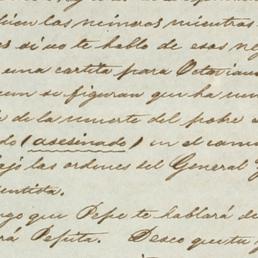 lucen las neuronas mientras
es si no te hablo de esas ne
una cartita para Octavian
cum se figuran que ha mu
de la muerte del pobre
do (asesinado) en el com
ajo las ordenes del General
entista.
ngo que Pepe te hablará de
rá Pepita. Deseo que tu